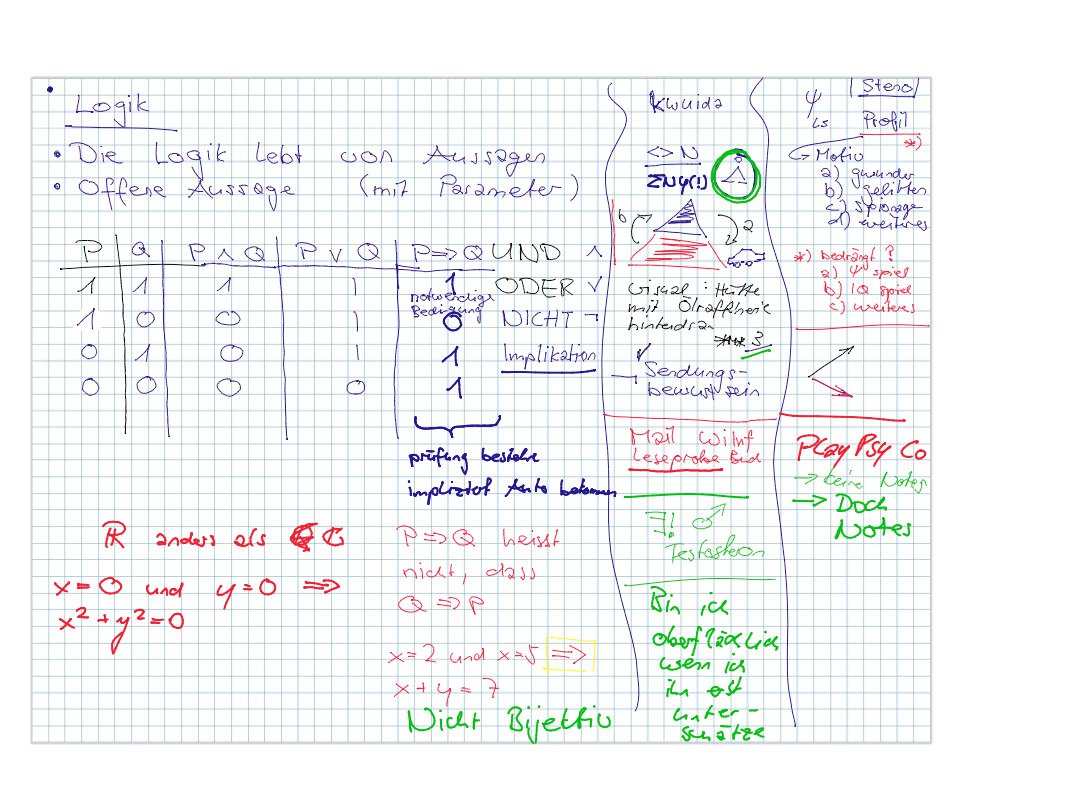 Logik
• Die Logik lebt von Aussagen
• Offene Aussage (mit Parameter)
P Q P ∧ Q P ∨ Q P => Q UND ∧
1 1 1 1 1 ODER ∨
notwendige
Bedingung
1 0 0 1 0 NICHT ¬
0 1 0 1 1 Implikation
0 0 0 0 1
prüfung bestehe
impliziert Auto bekommen
ℝ anders als ℂ
x = 0 und y = 0 =>
x² + y² = 0
P => Q heisst
nicht, dass
Q => P
x = 2 und x = 5 =>
x + y = 7
Nicht Bijektiv
Kwuida
<> N
ZNY(!)
b
2
visual : Hütte
mit Ölraffherie
hinterdran
3
Sendungs-
bewustsein
Mail WiInf
Leseprobe Bild
∃! ♂
Testosteron
Bin ich
oberflächlich
wenn ich
ihn erst
unter-
schätze
ψ
LS
Steno
Profil
*)
Motiv
a)
b)
c) Spionage
d) weiteres
*) bedrängt ?
a) ψ spiel
b) IQ spiel
c) weiteres
Play Psy Co
→ keine Notes
→ Doch
Notes